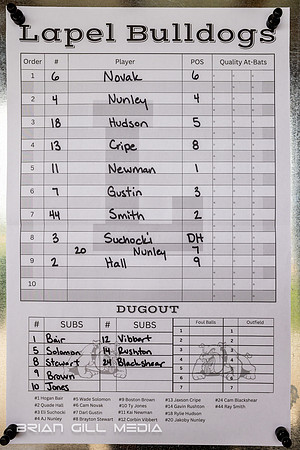 Lapel Bulldogs
Order # Player POS Quality At-Bats
1 6 Novak 6
2 4 Nunley 4
3 18 Hudson 5
4 13 Cripe 8
5 11 Newman 1
6 7 Gustin 3
7 44 Smith 2
8 3 Suchocki DH
20 Nunley 7
9 2 Hall 9
10
DUGOUT
# SUBS # SUBS Foul Balls Outfield
1 Bair 12 Vibbert
5 Solomon 14 Rushton
8 Stewart 24 Blackshear
9 Brown
10 Jones
1 1
2 2
3 3
4 4
5 5
6 6
7 7
#1 Hogan Bair #5 Wade Solomon #9 Boston Brown #13 Jaxson Cripe #24 Cam Blackshear
#2 Quade Hall #6 Cam Novak #10 Ty Jones #14 Gavin Rushton #44 Ray Smith
#3 Eli Suchocki #7 Dart Gustin #11 Kai Newman #18 Rylie Hudson
#4 AJ Nunley #8 Brayton Stewart #12 Corbin Vibbert #20 Jakoby Nunley
BRIAN GILL MEDIA